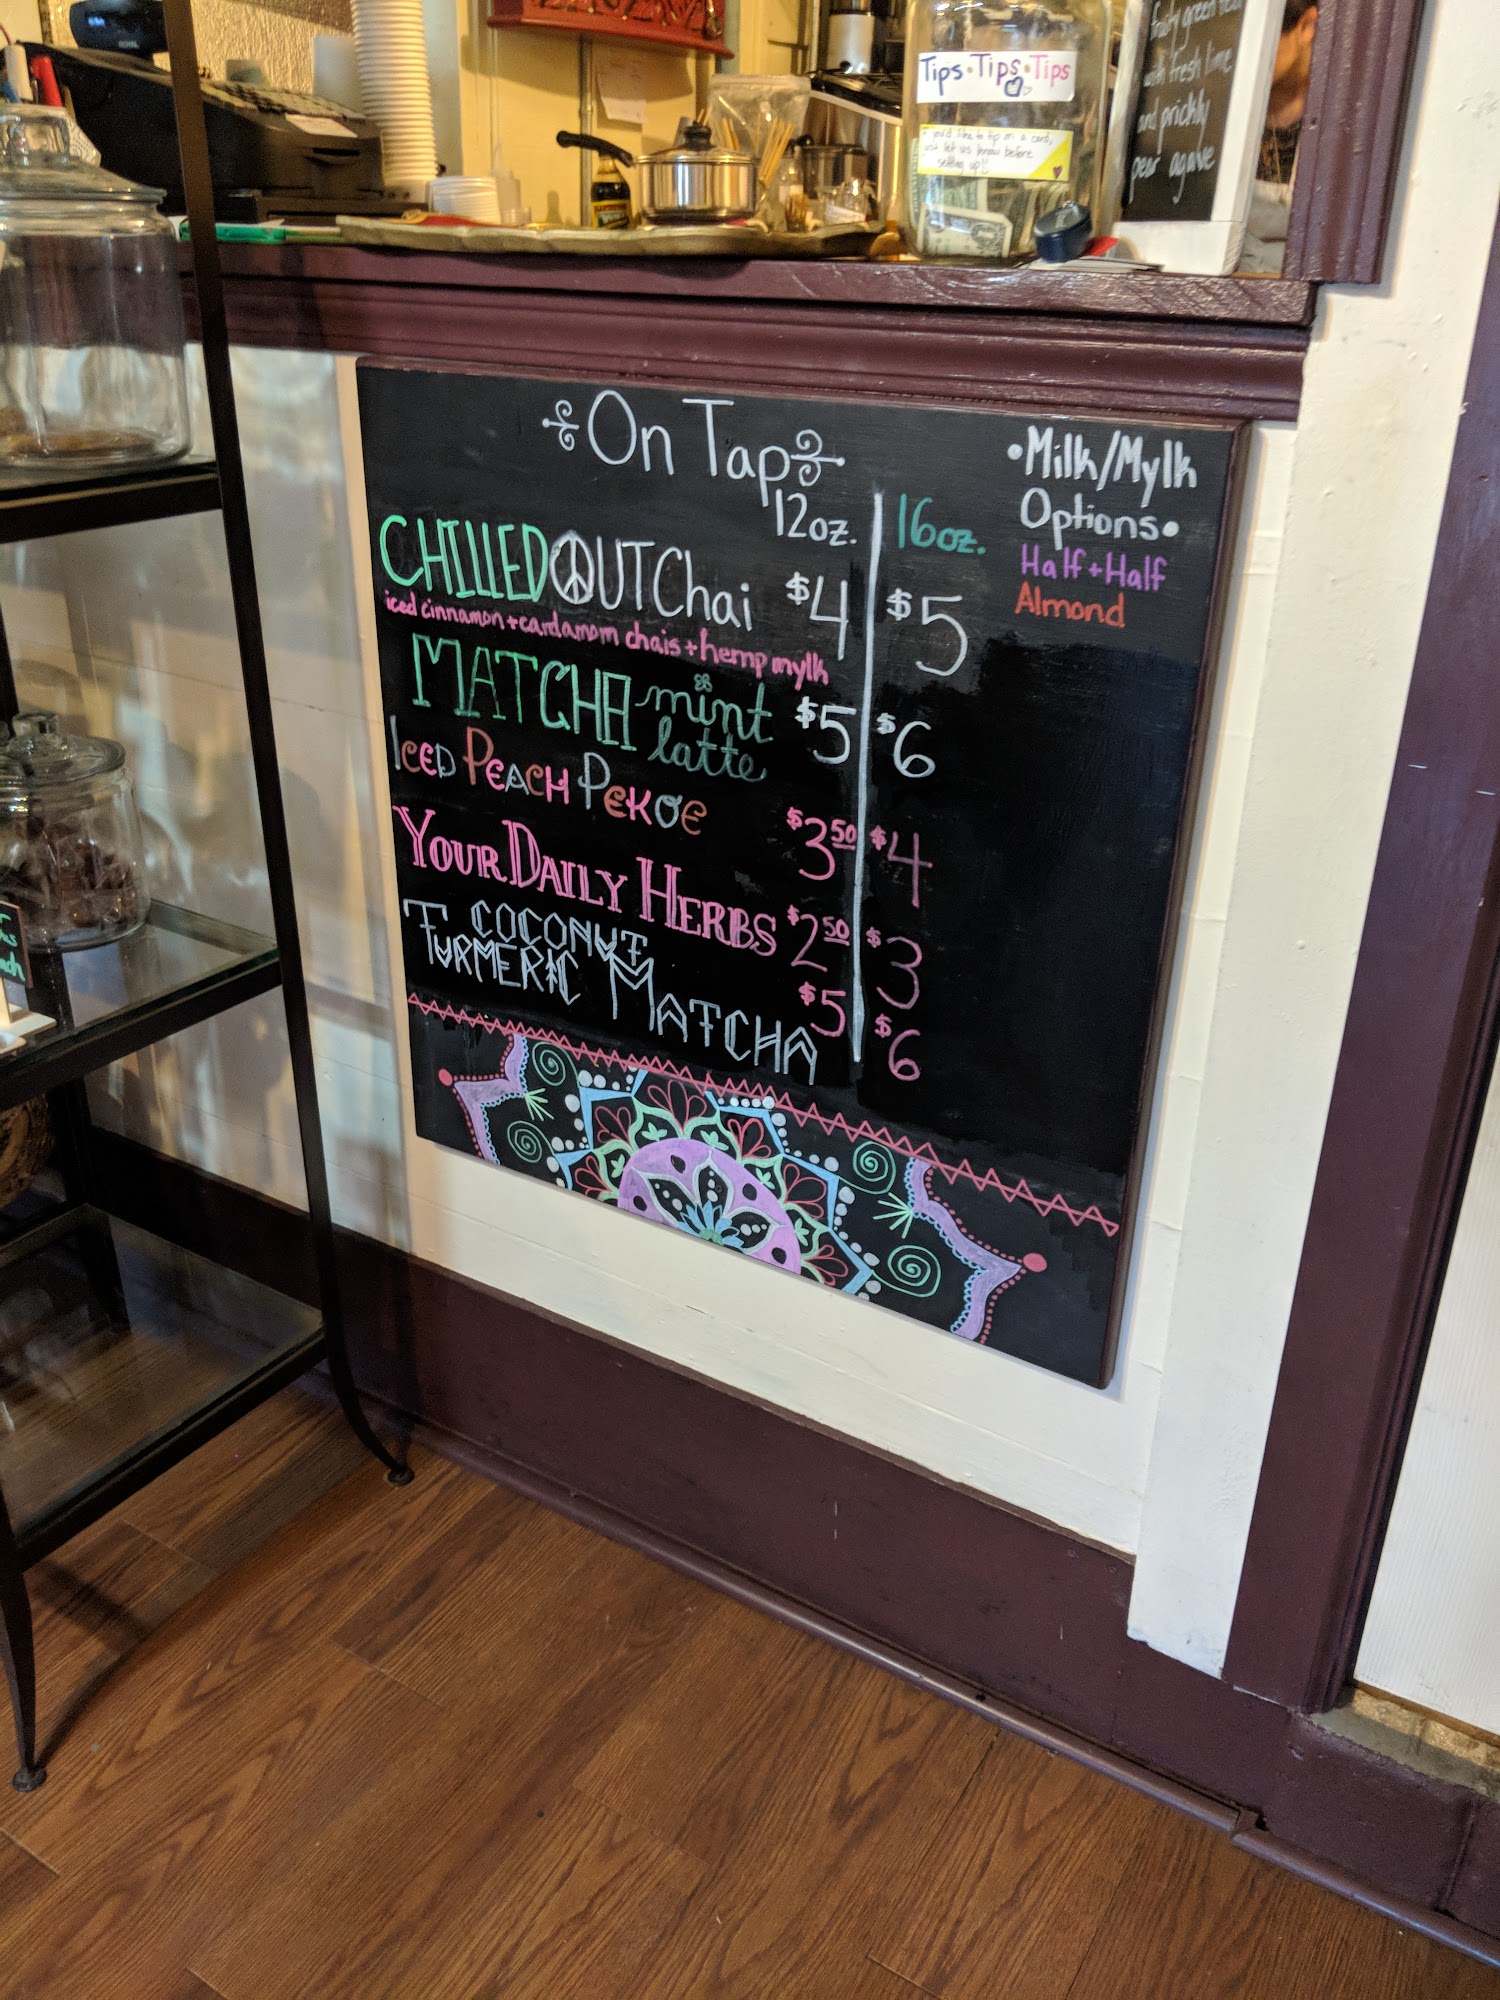 Tips · Tips · Tips
you'd like to tip on a card,
just let us know before
setting up!!
fruity green tea
with fresh lime
and prickly
pear agave
On Tap
12oz. 16oz.
CHILLED OUT Chai $4 $5
iced cinnamon + cardamom chais + hemp mylk
MATCHA mint latte $5 $6
ICED PEACH PEKOE $3.50 $4
YOUR DAILY HERBS $2.50 $3
COCONUT
TURMERIC MATCHA $5 $6
•Milk/Mylk
Options•
Half + Half
Almond